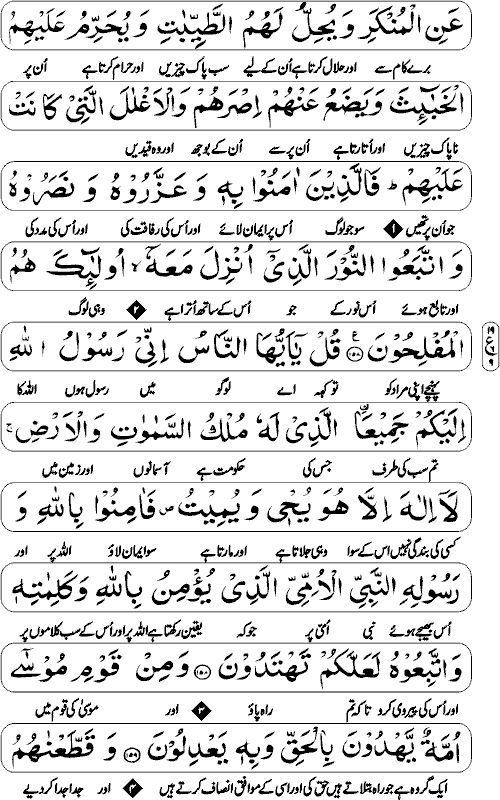 عَنِ الْمُنْكَرِ وَ يُحِلُّ لَهُمُ الطَّيِّبٰتِ وَ يُحَرِّمُ عَلَيْهِمُ
برے کام سے اور حلال کرتا ہے اُن کے لیے سب پاک چیزیں اور حرام کرتا ہے اُن پر
الْخَبٰٓئِثَ وَ يَضَعُ عَنْهُمْ اِصْرَهُمْ وَ الْاَغْلٰلَ الَّتِيْ كَانَتْ
ناپاک چیزیں اور اُتارتا ہے اُن پر سے اُن کے بوجھ اور وہ قیدیں
عَلَيْهِمْ ؕ فَالَّذِيْنَ اٰمَنُوْا بِهٖ وَ عَزَّرُوْهُ وَ نَصَرُوْهُ
جو اُن پر تھیں ۱ سو جو لوگ اُس پر ایمان لائے اور اُس کی رفاقت کی اور اُس کی مدد کی
وَ اتَّبَعُوا النُّوْرَ الَّذِيْۤ اُنْزِلَ مَعَهٗۤ ۙ اُولٰٓئِكَ هُمُ
اور تابع ہوئے اُس نور کے جو اُس کے ساتھ اُترا ہے ۲ وہی لوگ
الْمُفْلِحُوْنَ ﴿۱۵۷﴾ قُلْ يٰۤاَيُّهَا النَّاسُ اِنِّيْ رَسُوْلُ اللّٰهِ
پہنچے اپنی مراد کو تو کہہ اے لوگو میں رسول ہوں اللہ کا
اِلَيْكُمْ جَمِيْعَا۟ الَّذِيْ لَهٗ مُلْكُ السَّمٰوٰتِ وَ الْاَرْضِ ۚ
تم سب کی طرف جس کی حکومت ہے آسمانوں اور زمین میں
لَاۤ اِلٰهَ اِلَّا هُوَ يُحْيٖ وَ يُمِيْتُ ۪ فَاٰمِنُوْا بِاللّٰهِ وَ
کسی کی بندگی نہیں اس کے سوا وہی جلاتا ہے اور مارتا ہے سو ایمان لاؤ اللہ پر اور
رَسُوْلِهِ النَّبِيِّ الْاُمِّيِّ الَّذِيْ يُؤْمِنُ بِاللّٰهِ وَ كَلِمٰتِهٖ
اُس بھیجے ہوئے نبی اُمی پر جو کہ یقین رکھتا ہے اللہ پر اور اُس کے سب کلاموں پر
وَ اتَّبِعُوْهُ لَعَلَّكُمْ تَهْتَدُوْنَ ﴿۱۵۸﴾ وَ مِنْ قَوْمِ مُوْسٰۤى
اور اُس کی پیروی کرو تاکہ تم راہ پاؤ ۳ اور موسیٰ کی قوم میں
اُمَّةٌ يَّهْدُوْنَ بِالْحَقِّ وَ بِهٖ يَعْدِلُوْنَ ﴿۱۵۹﴾ وَ قَطَّعْنٰهُمُ
ایک گروہ ہے جو راہ بتلاتے ہیں حق کی اور اسی کے موافق انصاف کرتے ہیں ۴ اور جدا جدا کر دیے